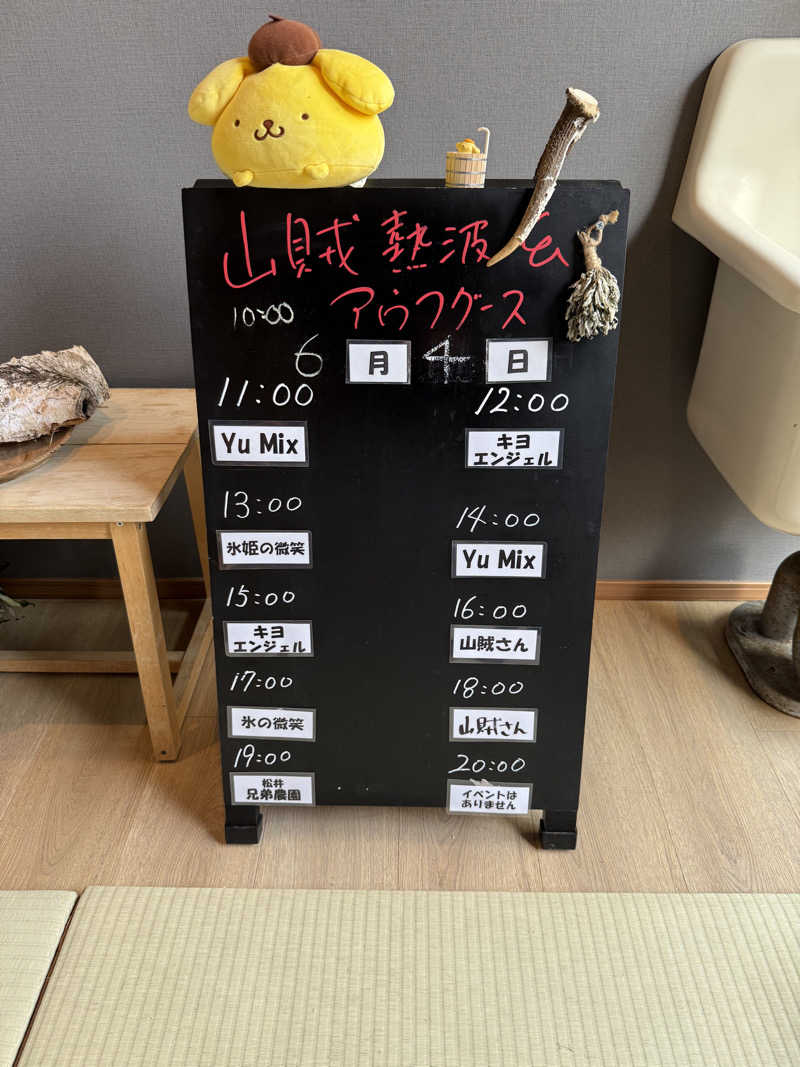 山賊 熱波 &
アウフグース
10:00
6 月 4 日
11:00
Yu Mix
12:00
キヨ
エンジェル
13:00
氷姫の微笑
14:00
Yu Mix
15:00
キヨ
エンジェル
16:00
山賊さん
17:00
氷の微笑
18:00
山賊さん
19:00
松井
兄弟農園
20:00
イベントは
ありません